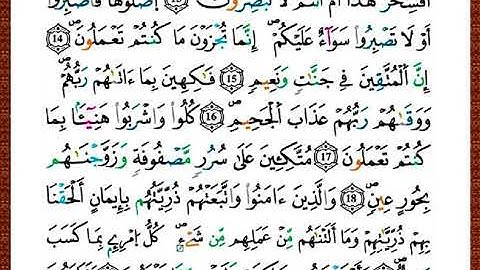 أَفَسِحْرٌ هَٰذَا أَمْ أَنتُمْ لَا تُبْصِرُونَ اصْلَوْهَا فَاصْبِرُوا
أَوْ لَا تَصْبِرُوا سَوَآءٌ عَلَيْكُمْ إِنَّمَا تُجْزَوْنَ مَا كُنتُمْ تَعْمَلُونَ 14
إِنَّ الْمُتَّقِينَ فِى جَنَّٰتٍ وَنَعِيمٍ 15 فَٰكِهِينَ بِمَا ءَاتَىٰهُمْ رَبُّهُمْ
وَوَقَىٰهُمْ رَبُّهُمْ عَذَابَ الْجَحِيمِ 16 كُلُوا وَاشْرَبُوا هَنِيٓئًا بِمَا
كُنتُمْ تَعْمَلُونَ 17 مُتَّكِـِٔينَ عَلَىٰ سُرُرٍ مَّصْفُوفَةٍ وَزَوَّجْنَٰهُم
بِحُورٍ عِينٍ 18 وَالَّذِينَ ءَامَنُوا وَاتَّبَعَتْهُمْ ذُرِّيَّتُهُم بِإِيمَٰنٍ أَلْحَقْنَا
بِهِمْ ذُرِّيَّتَهُمْ وَمَآ أَلَتْنَٰهُم مِّنْ عَمَلِهِم مِّن شَىْءٍ كُلُّ امْرِئٍ بِمَا كَسَبَ